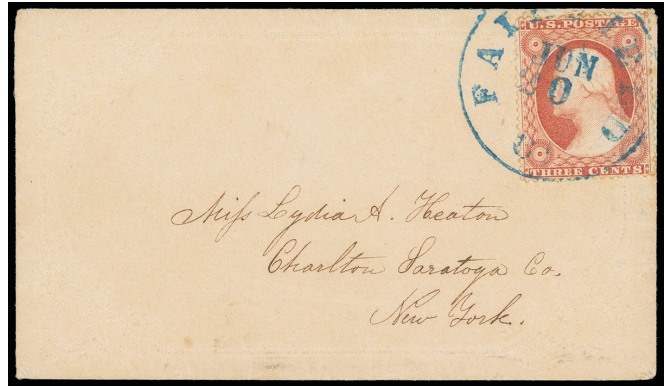 U.S. POSTAGE
JUN
THREE CENTS
Miss Lydia A. Heaton
Charlton Saratoga Co.
New York.